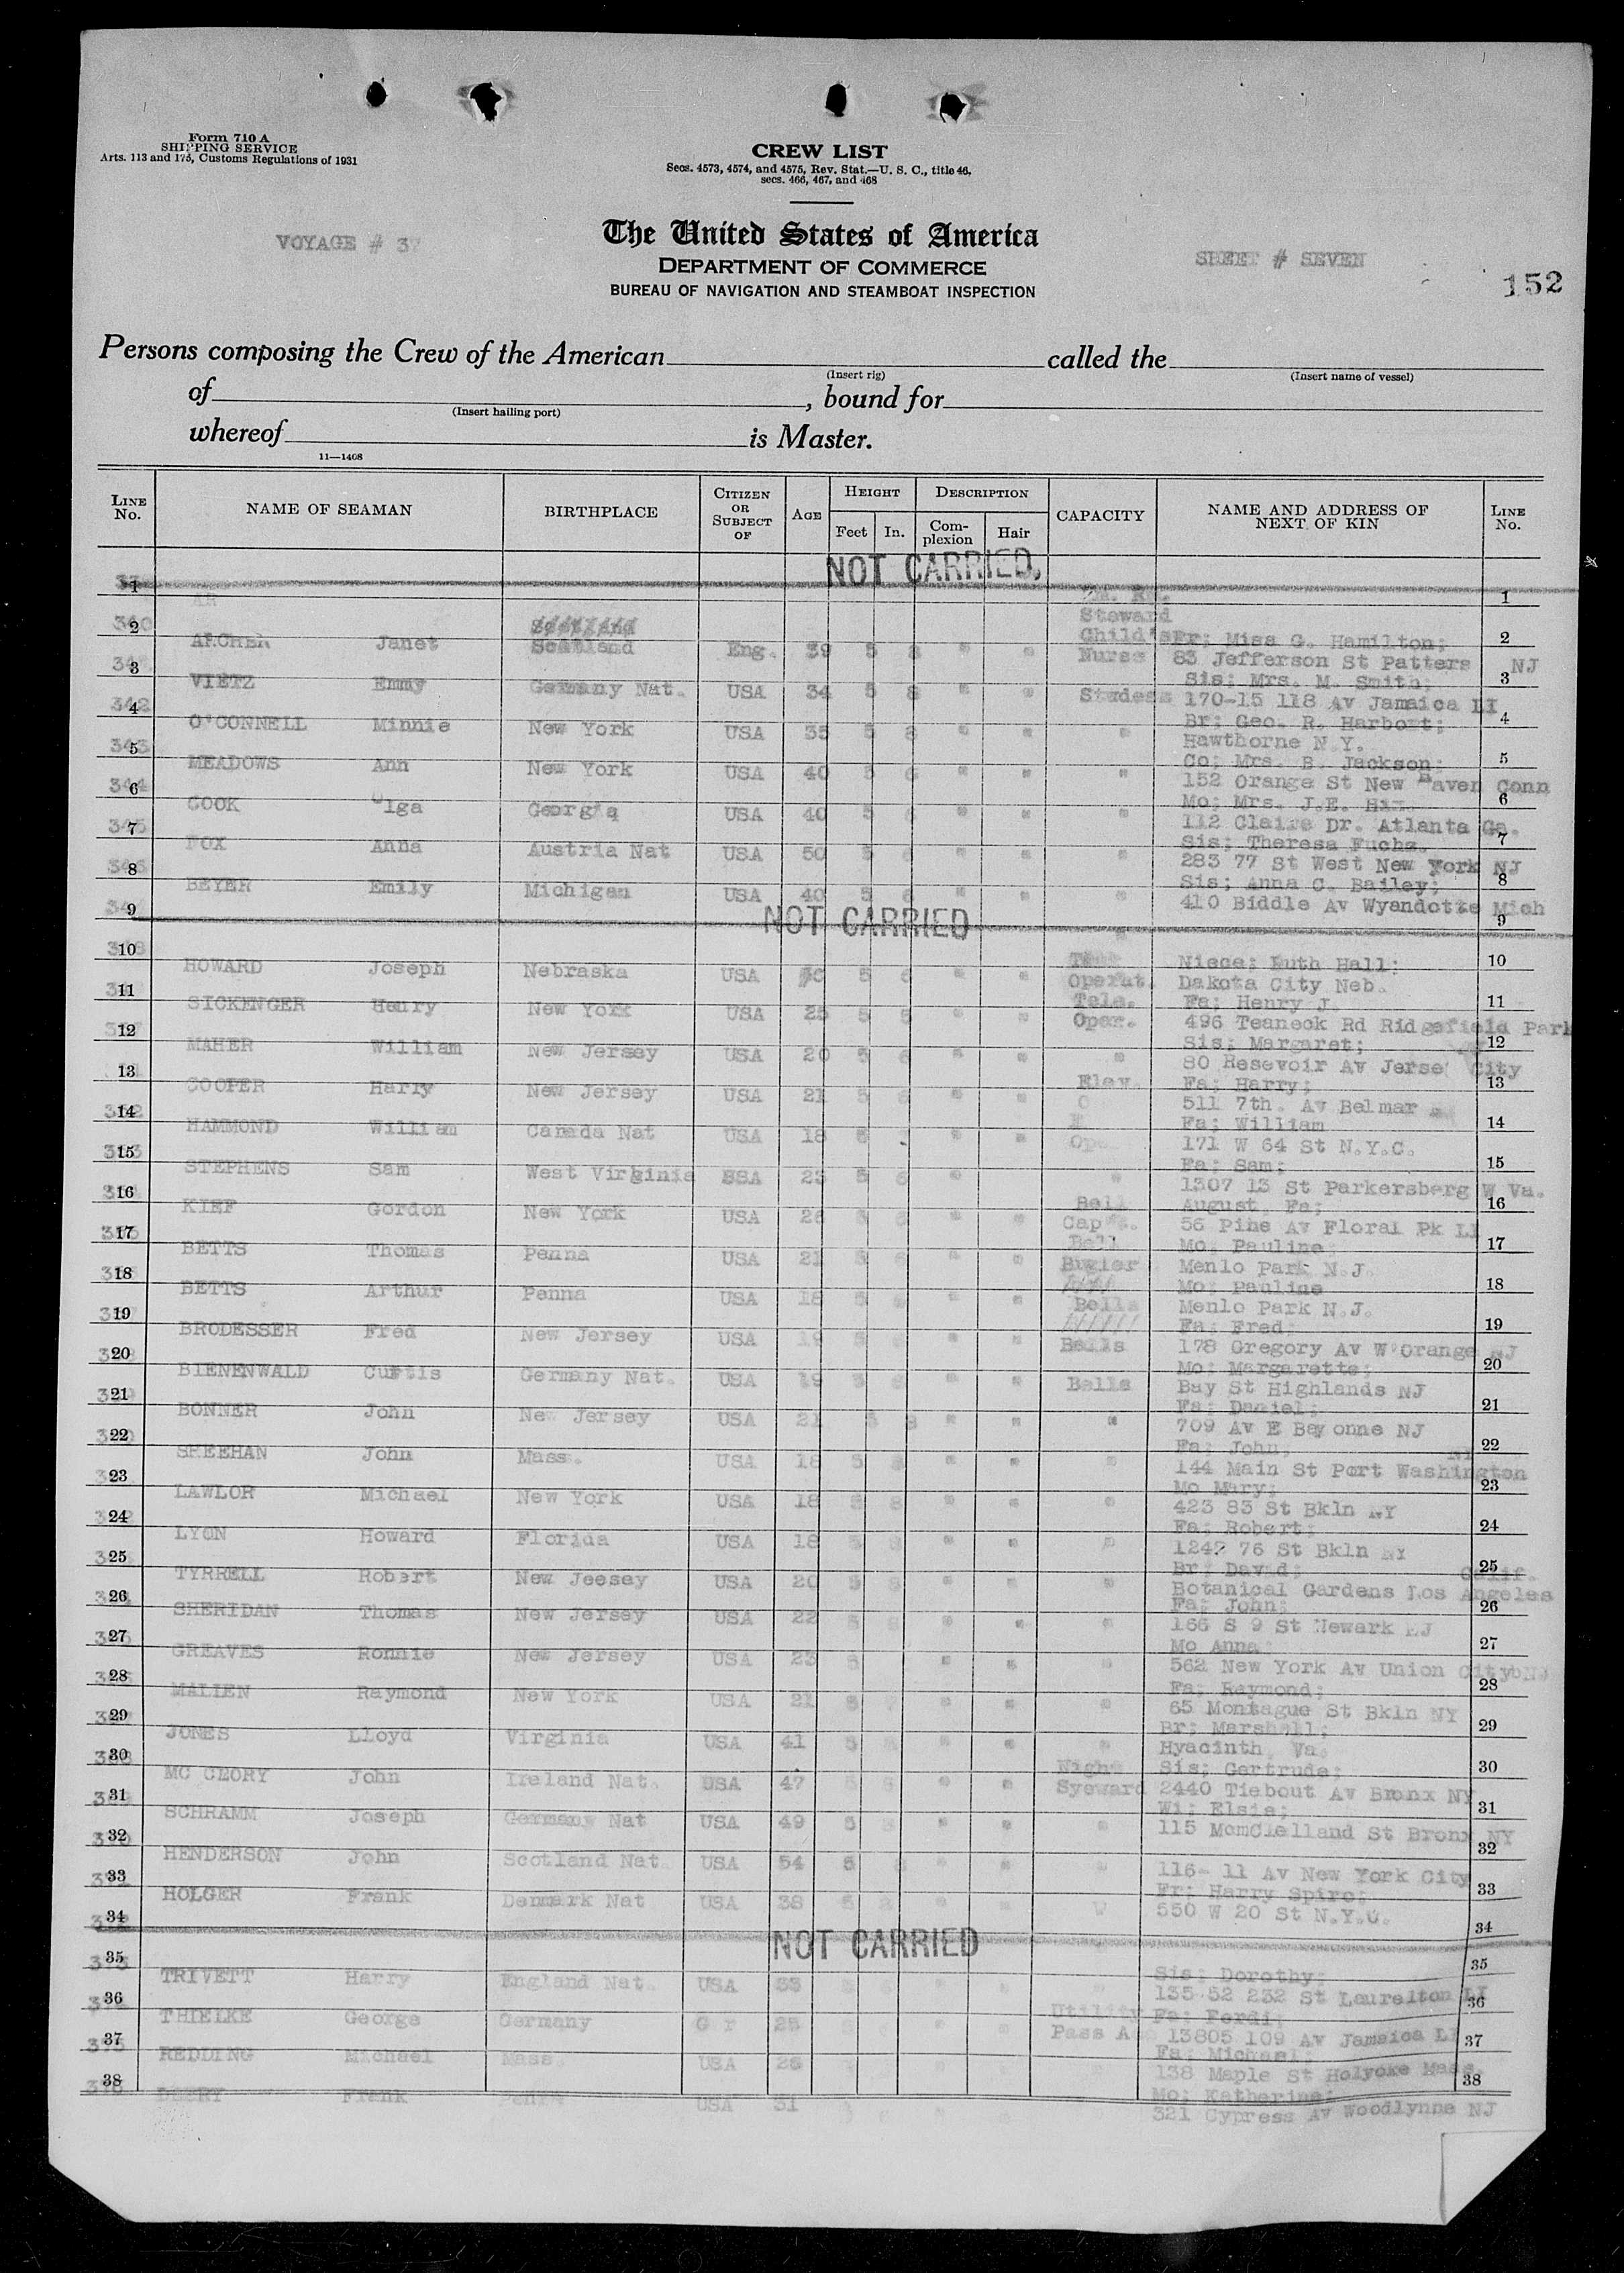 Form 710 A
SHIPPING SERVICE
Arts. 113 and 175, Customs Regulations of 1931
CREW LIST
Secs. 4573, 4574, and 4575, Rev. Stat.—U. S. C., title 46,
secs. 466, 467, and 468
VOYAGE # 37
The United States of America
DEPARTMENT OF COMMERCE
BUREAU OF NAVIGATION AND STEAMBOAT INSPECTION
SHEET # SEVEN
152
Persons composing the Crew of the American called the
(Insert rig) (Insert name of vessel)
of , bound for
(Insert hailing port)
whereof is Master.
11—1408
LINE No. NAME OF SEAMAN BIRTHPLACE CITIZEN OR SUBJECT OF AGE HEIGHT Feet In. DESCRIPTION Complexion Hair CAPACITY NAME AND ADDRESS OF NEXT OF KIN LINE No.
NOT CARRIED.
1 1
Steward
2 ARCHER Janet Scotland Eng. 39 5 8 " " Child's Nurse Fr; Miss G. Hamilton; 2
83 Jefferson St Patters NJ
3 VIETZ Emmy Germany Nat. USA 34 5 8 " " Stwdess Sis; Mrs. M. Smith; 3
170-15 118 Av Jamaica LI
4 O'CONNELL Minnie New York USA 35 5 8 " " " Br; Geo. R. Harbont; 4
Hawthorne N.Y.
5 MEADOWS Ann New York USA 40 5 6 " " " Co; Mrs. B. Jackson; 5
152 Orange St New Haven Conn
6 COOK Olga Georgia USA 40 5 6 " " " Mo; Mrs. J.E. 6
112 Claire Dr. Atlanta Ga.
7 FOX Anna Austria Nat USA 50 5 6 " " " Sis; Theresa Fuchs. 7
283 77 St West New York NJ
8 BEYER Emily Michigan USA 40 5 6 " " " Sis; Anna C. Bailey; 8
410 Biddle Av Wyandotte Mich
9 NOT CARRIED 9
10 HOWARD Joseph Nebraska USA 5 6 " " Operat. Niece; Ruth Hall; 10
Dakota City Neb.
11 SICKENGER Henry New York USA 25 5 6 " " Tele. Oper. Fa; Henry J. 11
496 Teaneck Rd Ridgefield Park
12 MAHER William New Jersey USA 20 5 6 " " " Sis; Margaret; 12
80 Resevoir Av Jerse City
13 COOPER Harry New Jersey USA 21 5 6 " " Elev. Fa; Harry; 13
511 7th. Av Belmar
14 HAMMOND William Canada Nat USA 18 5 " " Fa; William 14
171 W 64 St N.Y.C.
15 STEPHENS Sam West Virginia SSA 23 5 6 " " Fa; Sam; 15
1307 13 St Parkersberg W Va.
16 KIEF Gordon New York USA 26 5 6 " " Bell Capt. August, Fa; 16
56 Pine Av Floral Pk LI
17 BETTS Thomas Penna USA 21 5 6 " " Bell Bugler Mo; Pauline; 17
Menlo Park N.J.
18 BETTS Arthur Penna USA 18 5 " " Bells Mo; Pauline 18
Menlo Park N.J.
19 BRODESSER Fred New Jersey USA 19 5 " " Bells Fa; Fred; 19
178 Gregory Av W Orange NJ
20 BIENENWALD Curtis Germany Nat. USA 19 5 " " Bells Mo; Margarette; 20
Bay St Highlands NJ
21 BONNER John New Jersey USA 21 5 8 " " " Fa; Daniel; 21
709 Av E Bayonne NJ
22 SHEEHAN John Mass. USA 18 5 8 " " " Fa; John; 22
144 Main St Port Washington
23 LAWLOR Michael New York USA 18 5 8 " " " Mo Mary; 23
423 83 St Bkln NY
24 LYON Howard Florida USA 18 5 8 " " " Fa; Robert; 24
1242 76 St Bkln NY
25 TYRRELL Robert New Jeesey USA 20 5 8 " " " Br; David; 25
Botanical Gardens Los Angeles Calif.
26 SHERIDAN Thomas New Jersey USA 22 5 8 " " " Fa; John; 26
166 S 9 St Newark NJ
27 GREAVES Ronnie New Jersey USA 23 5 " " " Mo Anna 27
562 New York Av Union City
28 MALIEN Raymond New York USA 21 5 " " " Fa; Raymond; 28
65 Montague St Bkln NY
29 JONES LLoyd Virginia USA 41 5 " " " Br; Marshall; 29
Hyacinth, Va.
30 MC GEORY John Ireland Nat. USA 47 5 " " Night Syeward Sis; Gertrude; 30
2440 Tiebout Av Bronx NY
31 SCHRAMM Joseph Germany Nat USA 49 5 " " " Wi; Elsie; 31
115 Momclelland St Bronx NY
32 HENDERSON John Scotland Nat. USA 54 5 " " " 32
116- 11 Av New York City
33 HOLGER Frank Denmark Nat USA 38 5 " " Fr; Harry Spiro; 33
550 W 20 St N.Y.C.
34 NOT CARRIED 34
35 TRIVETT Harry England Nat. USA 33 Sis; Dorothy; 35
135-52 232 St Laurelton LI
36 THIELKE George Germany Ger 25 Utility Fa; Ferdi; 36
13805 109 Av Jamaica LI
37 REDDING Michael Mass. USA 26 Pass Fa; Michael; 37
138 Maple St Holyoke Mass.
38 Frank USA 31 Mo; Katherine; 38
321 Cypress Av Woodlynne NJ